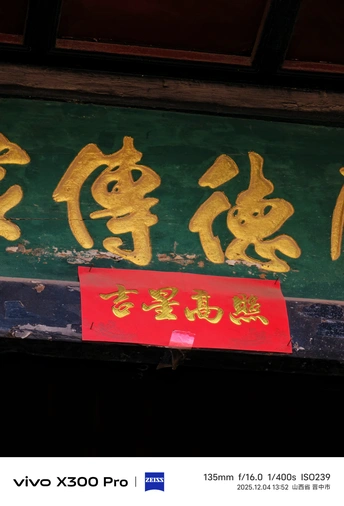 德傳
吉星高照
vivo X300 Pro | ZEISS
135mm f/16.0 1/400s ISO239
2025.12.04 13:52 山西省 晋中市